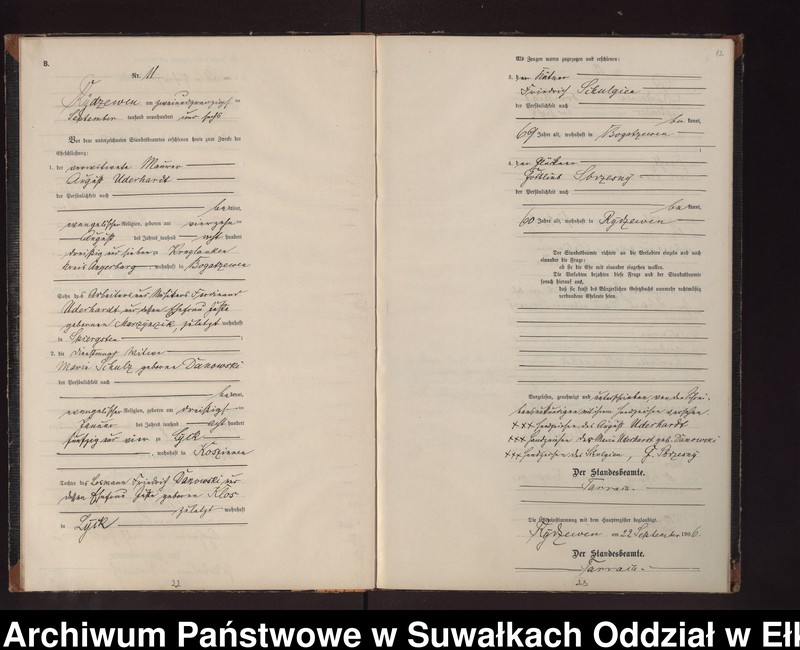 B.
Nr. 11
Rydzewen am zweiundzwanzigsten
September tausend neunhundert und sechs
Vor dem unterzeichneten Standesbeamten erschienen heute zum Zwecke der
Eheschließung:
1. der verwitwete Maurer
August Uderhardt
der Persönlichkeit nach
be kannt,
evangelischer Religion, geboren am vierzehnten
August des Jahres tausend acht hundert
dreißig und sieben zu Kruglanken
Kreis Angerburg wohnhaft in Bogatzewen
Sohn des Arbeiters Ferdinand
Uderhardt und dessen Ehefrau
geborenen zuletzt wohnhaft
in
2. die Witwe
Marie Schulz geborene Danowski
der Persönlichkeit nach
be kannt,
evangelischer Religion, geboren am dreißigsten
Januar des Jahres tausend acht hundert
fünfzig und vier zu Lyck
, wohnhaft in
Tochter des Losmann Friedrich Danowski und
dessen Ehefrau geborene Klos
zuletzt wohnhaft
in Lyck
22
12
Als Zeugen waren zugezogen und erschienen:
3. der Kätner
Friedrich Schulgien
der Persönlichkeit nach
be kannt,
69 Jahre alt, wohnhaft in Bogatzewen
4. der
Gottlieb
der Persönlichkeit nach
be kannt,
60 Jahre alt, wohnhaft in Rydzewen
Der Standesbeamte richtete an die Verlobten einzeln und nach
einander die Frage:
ob sie die Ehe mit einander eingehen wollen.
Die Verlobten bejahten diese Frage und der Standesbeamte
sprach hierauf aus,
daß sie kraft des Bürgerlichen Gesetzbuchs nunmehr rechtmäßig
verbundene Eheleute seien.
Vorgelesen, genehmigt und unterschrieben, von den Schrei-
bensunkundigen mit ihrem Handzeichen versehen.
+++ Handzeichen des August Uderhardt
+++ Handzeichen der Marie Uderhardt geb. Danowski
+++ Handzeichen des Schulgien, G.
Der Standesbeamte.
Die Übereinstimmung mit dem Hauptregister beglaubigt.
Rydzewen am 22 September 1906.
Der Standesbeamte.
23
Archiwum Państwowe w Suwałkach Oddział w Ełk